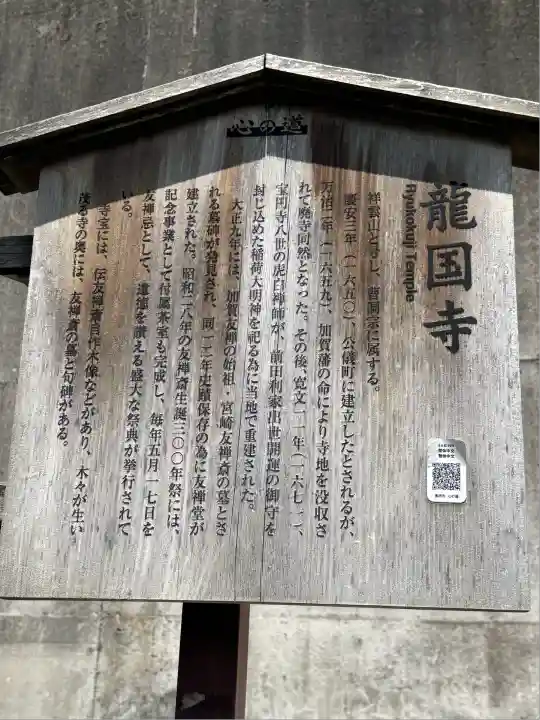 心の道
龍国寺
Ryukokuji Temple
祥雲山と号し、曹洞宗に属する。
慶安三年（一六五〇）、公儀町に建立したとされるが、
万治二年（一六五九）、加賀藩の命により寺地を没収さ
れて廃寺同然となった。その後、寛文一一年（一六七一）、
宝円寺八世の虎白禅師が、前田利家出世開運の御守を
封じ込めた稲荷大明神を祀る為に当地で重建された。
大正九年には、加賀友禅の始祖・宮崎友禅斎の墓とさ
れる墓碑が発見され、同一二年史蹟保存の為に友禅堂が
建立された。昭和二八年の友禅斎生誕三〇〇年祭には、
記念事業として付属茶室も完成し、毎年五月一七日を
友禅忌として、遺徳を讃える盛大な祭典が挙行されて
いる。
寺宝には、伝友禅斎自作木像などがあり、木々が生い
茂る寺の奥には、友禅斎の墓と句碑がある。